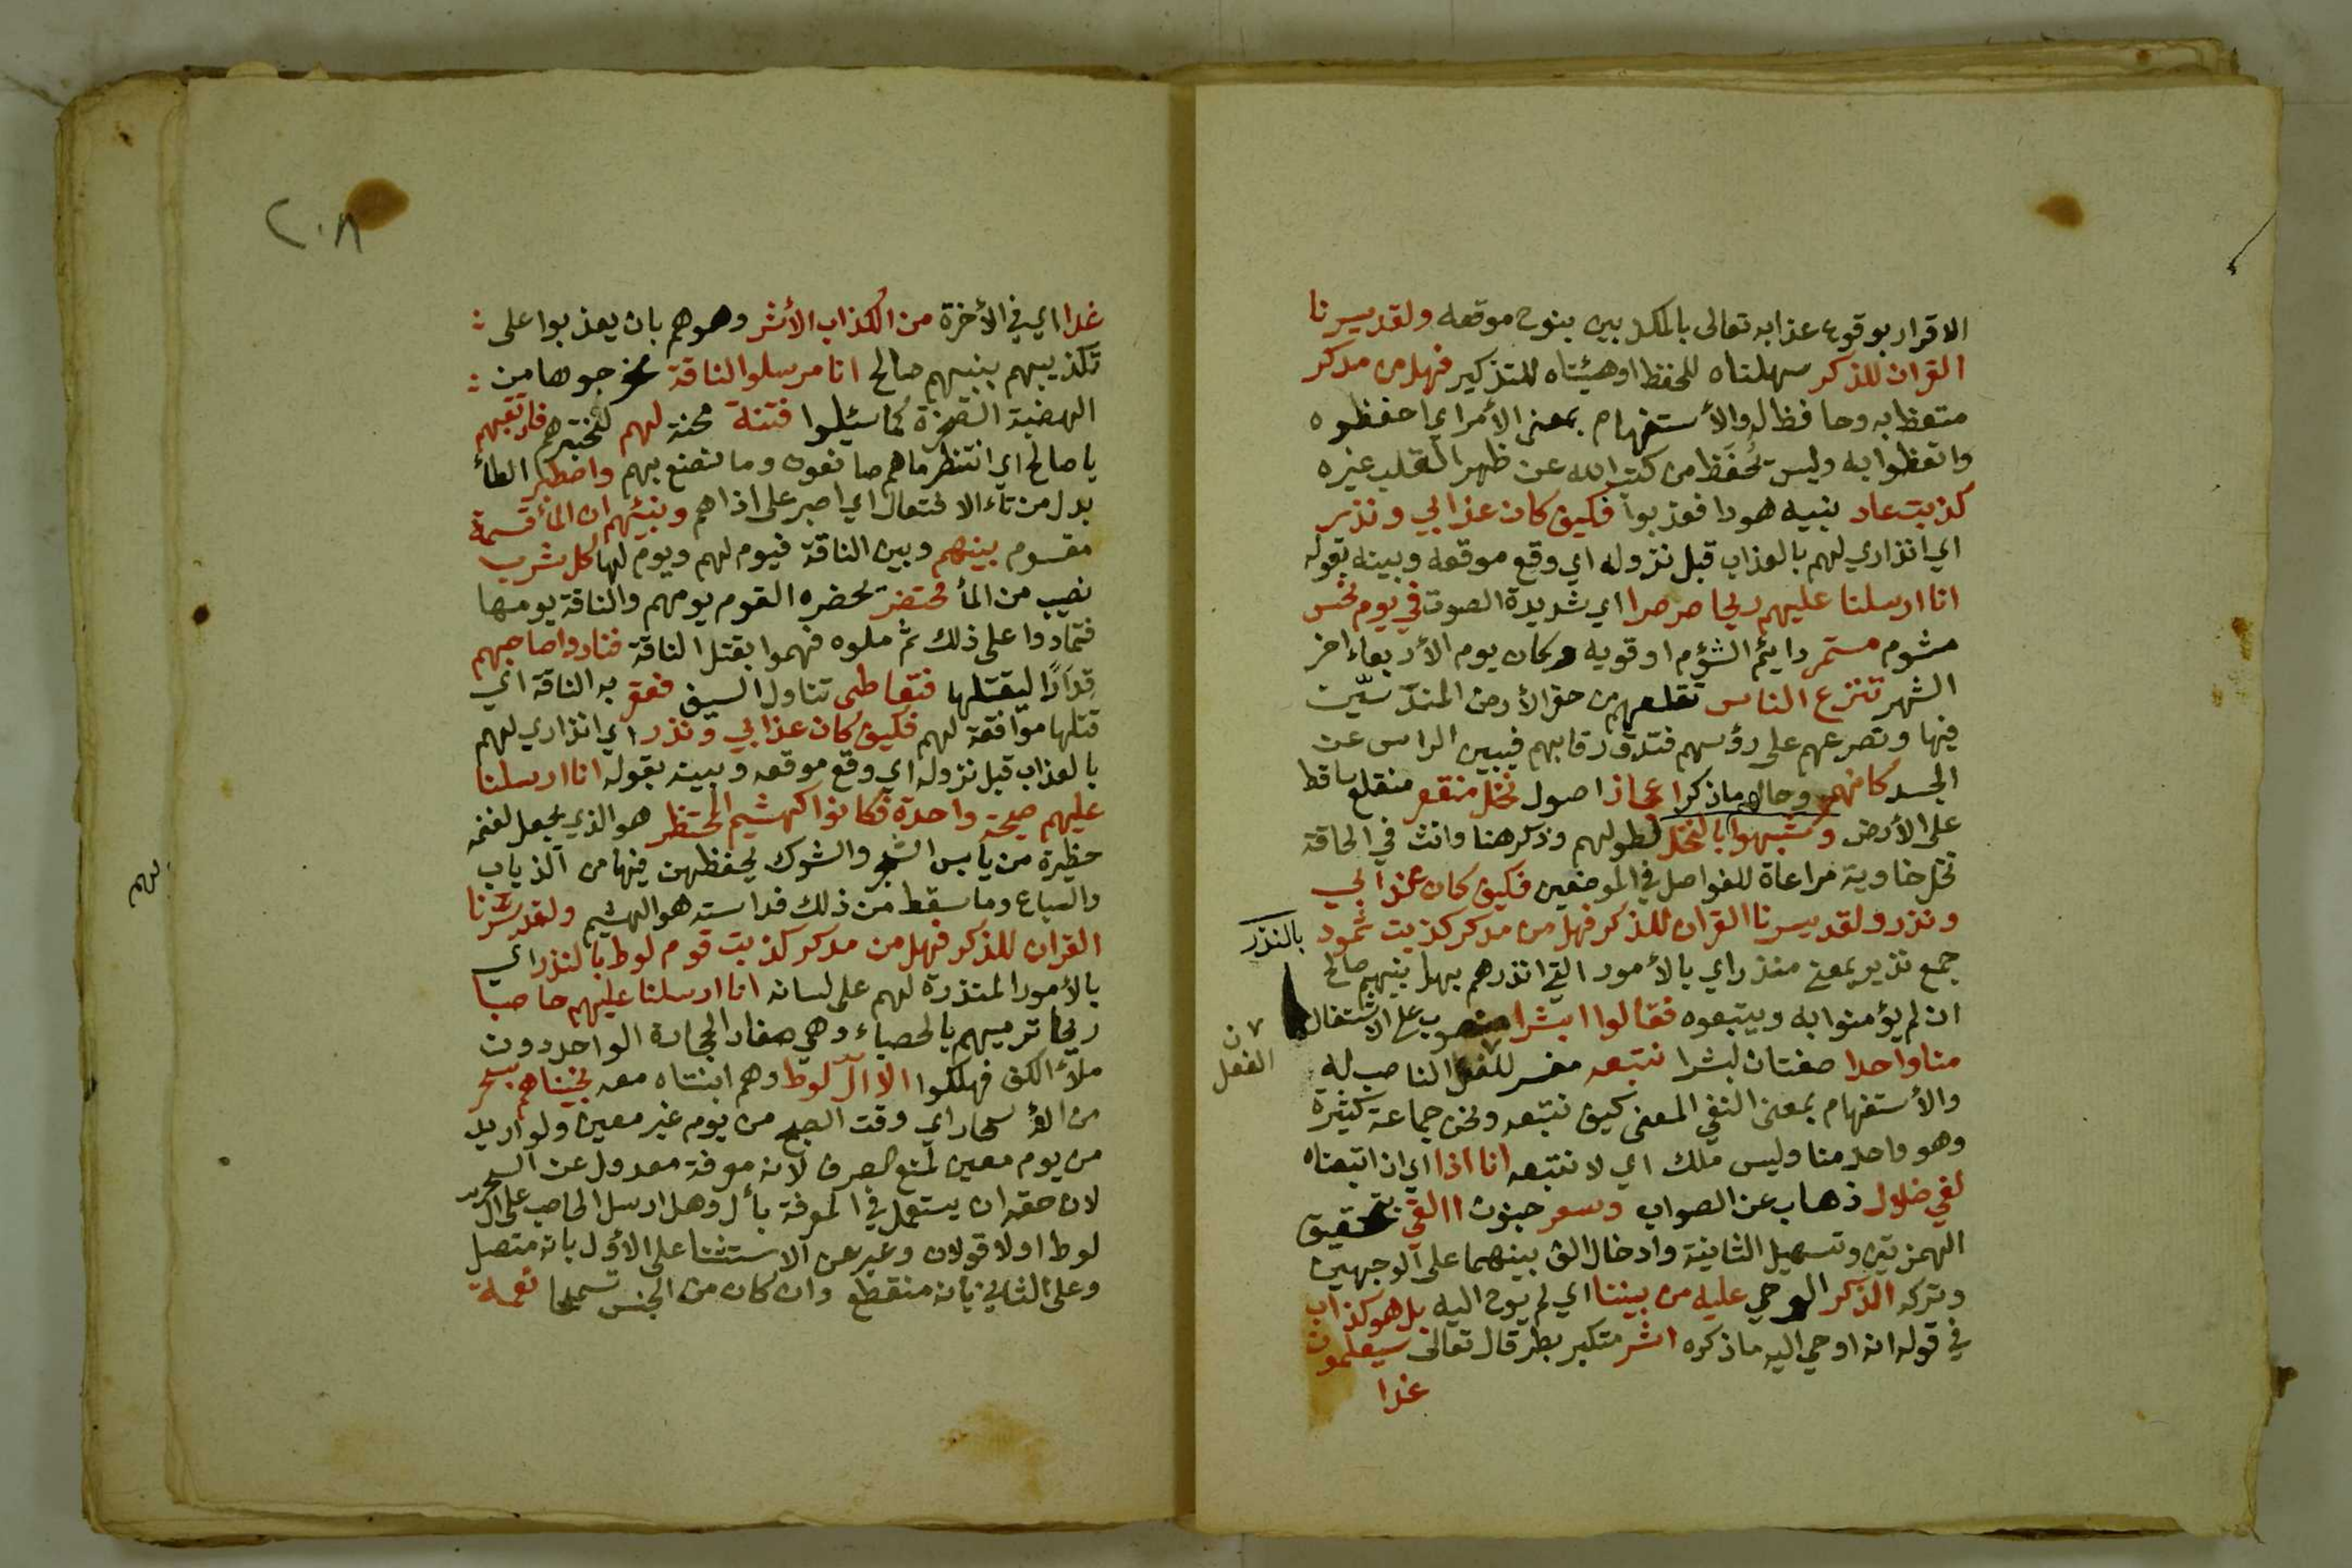 الاقرار بوقوع عذابه تعالى بالمكذبين بنوح موقعه ولقد يسرنا
القران للذكر سهلناه للحفظ اوهيئناه للتذكير فهل من مدكر
متعظ به وحافظ له والأستفهام بمعنى الأمر اي احفظوه
واتعظوا به وليس يُحفَظ من كتب الله عن ظهر القلب غيره
كذبت عاد بنبيه هودا فعذبوا فكيف كان عذابي ونذر
اي انذاري لهم بالعذاب قبل نزوله اي وقع موقعه وبينه بقوله
انا ارسلنا عليهم ريحا صرصرا اي شديدة الصوت في يوم نحس
مشوم مستمر دايم الشؤم او قويه وكان يوم الأربعاء اخر
الشهر تنزع الناس تقلعهم من حفر الأرض المندسّين
فيها وتصرعهم على رؤسهم فتدق رقابهم فيبين الراس عن
الجسد كانهم وحالهم ماذكر اعجاز اصول نخل منقعر منقلع ساقط
على الأرض وشبهوا بالنخل لطولهم وذكر هنا وانث في الحاقة
نخل خاوية مراعاة للفواصل في الموضعين فكيف كان عذابي
ونذر ولقد يسرنا القران للذكر فهل من مدكر كذبت ثمود
بالنذر
جمع نذير بمعنى منذر اي بالأمور التي انذرهم بها نبيهم صالح
ان لم يؤمنوا به ويتبعوه فقالوا ابشرا منصوب على الاشتغال
منا واحدا صفتان لبشرا نتبعه مفسر للفعل الناصب له
ن
الفعل
والأستفهام بمعنى النفي المعنى كيف نتبعه ونحن جماعة كثيرة
وهو واحد منا وليس ملك اي لا نتبعه انا اذا اي ان اتبعناه
لفي ضلال ذهاب عن الصواب وسعر جنون االقي بتحقيق
الهمزتين وتسهيل الثانية وادخال الف بينهما على الوجهين
وتركه الذكر الوحي عليه من بيننا اي لم يوح اليه بل هو كذاب
في قوله انه اوحي اليه ماذكره اشر متكبر بطر قال تعالى سيعلمون
غدا
٢٠٨
غدا اي في الأخرة من الكذاب الأشر وهو هم بان يعذبوا على
تكذيبهم بنبيهم صالح انا مرسلوا الناقة مخرجوها من
الهضبة الصخرة كما سئلوا فتنة محنة لهم لنختبرهم فارتقبهم
يا صالح اي انتظر ماهم صانعون وما نصنع بهم واصطبر الطأ
بدل من تاء الافتعال اي اصبر على اذاهم ونبئهم ان المأ قسمة
مقسوم بينهم وبين الناقة فيوم لهم ويوم لها كل شرب
نصيب من المأ محتضر يحضره القوم يومهم والناقة يومها
فتمادوا على ذلك ثم ملوه فهموا بقتل الناقة فنادوا صاحبهم
قدارًا ليقتلها فتعاطى تناول السيف فعقر به الناقة اي
قتلها موافقة لهم فكيف كان عذابي ونذر اي انذاري لهم
بالعذاب قبل نزوله اي وقع موقعه وبينه بقوله انا ارسلنا
عليهم صيحة واحدة فكانوا كهشيم المحتظر هو الذي يجعل لغنمه
حظيرة من يابس الشجر والشوك يحفظهن فيها من الذياب
والسباع وما سقط من ذلك فداسته هو الهشيم ولقد يسرنا
القران للذكر فهل من مدكر كذبت قوم لوط بالنذر اي
بالأمور المنذرة لهم على لسانه انا ارسلنا عليهم حاصبا
ريحا ترميهم بالحصباء وهي صغار الحجارة الواحد دون
ملأ الكف فهلكوا الا آل لوط وهم ابنتاه معه نجيناهم بسحر
من الأسحار اي وقت الصبح من يوم غير معين ولو اريد
من يوم معين لمنع الصرف لأنه معرفة معدول عن السحر
لان حقه ان يستعمل في المعرفة بأل وهل ارسل الحاصب على ال
لوط اولا قولان وعبر عن الاستثنا على الأول بانه متصل
وعلى الثاني بانه منقطع وان كان من الجنس تسمحا نعمة